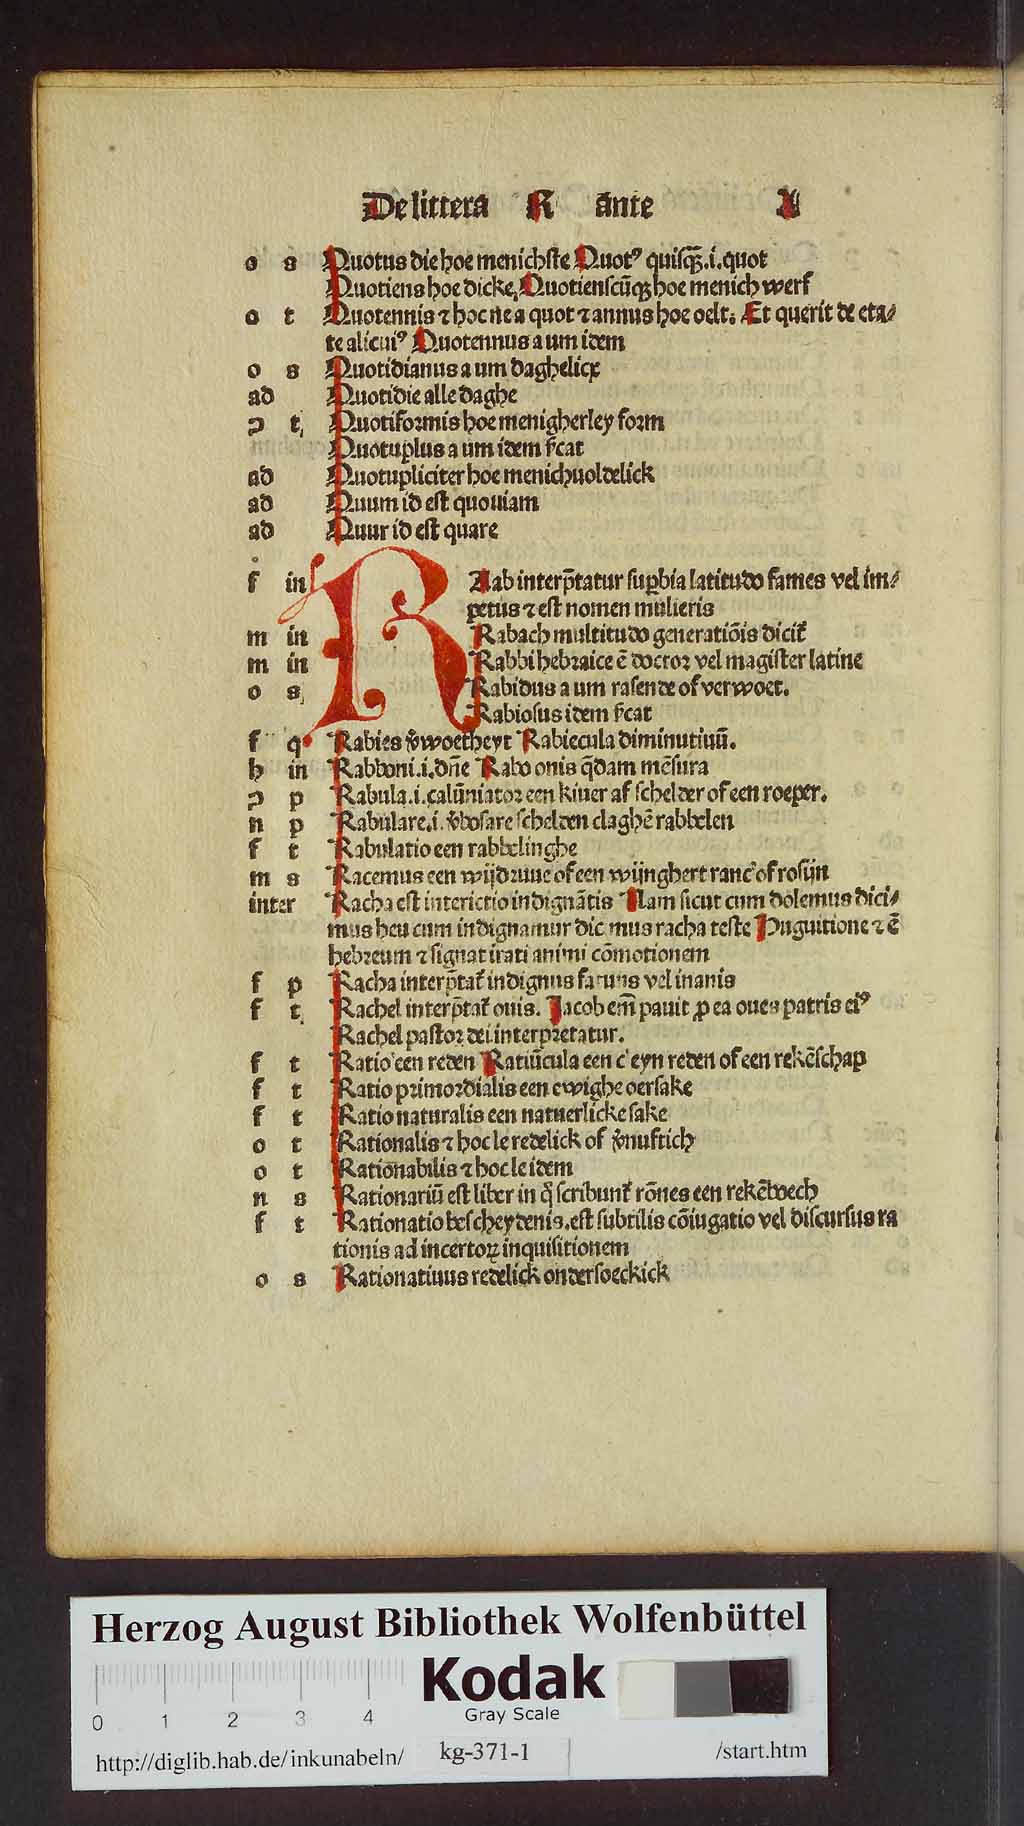 De littera R ante A
o s Quotus die hoe menichste Quotꝰ quisqꝫ .i. quot
Quotiens hoe dicke. Quotienscūqꝫ hoe menich werf
o t Quotennis ⁊ hoc ne a quot ⁊ annus hoe oelt. Et querit de eta⸗
te alicuiꝰ Quotennus a um idem
o s Quotidianus a um daghelicx
ad Quotidie alle daghe
ɔ t Quotiformis hoe menigherley form
Quotuplus a um idem
ad Quotupliciter hoe menichuoldelick
ad Quum id est quoniam
ad Quur id est quare
f in Rab interp̄tatur suꝑbia latitudo fames vel im⸗
petus ⁊ est nomen mulieris
m in Rabach multitudo generatiōis dicit᷑
m in Rabbi hebraice ē doctor vel magister latine
o s Rabidus a um rasende of verwoet.
Rabiosus idem
f q Rabies v̄woetheyt Rabiecula diminutiuū.
h in Rabboni .i. dn̄e Rabo onis q̄dam mēsura
ɔ p Rabula .i. calūniator een kiuer af schelder of een roeper.
n p Rabulare .i. v̄bosare schelden claghē rabbelen
f t Rabulatio een rabbelinghe
m s Racemus een wijdruue of een wijnghert ranc of rosijn
inter Racha est interictio indignātis Nam sicut cum dolemus dici⸗
mus heu cum indignamur dic mus racha teste Puguitione ⁊ ē
hebreum ⁊ signat irati animi cōmotionem
f p Racha interp̄tat᷑ indignus fatuus vel inanis
f t Rachel interp̄tat᷑ ouis. Jacob em̄ pauit ꝓ ea oues patris eiꝰ
Rachel pastor dei interpretatur.
f t Ratio een reden Ratiūcula een cleyn reden of een rekēschap
f t Ratio primordialis een ewighe oersake
f t Ratio naturalis een natuerlicke sake
o t Rationalis ⁊ hoc le redelick of v̄nuftich
o t Rationabilis ⁊ hoc le idem
n s Rationariū est liber in q̊ scribunt᷑ rōnes een rekēboech
f t Rationatio bescheydenis. est subtilis cōiugatio vel discursus ra
tionis ad incertoꝝ inquisitionem
o s Rationatiuus redelick ondersoeckick
Herzog August Bibliothek Wolfenbüttel
Kodak
Gray Scale
0 1 2 3 4
http://diglib.hab.de/inkunabeln/ kg-371-1 /start.htm